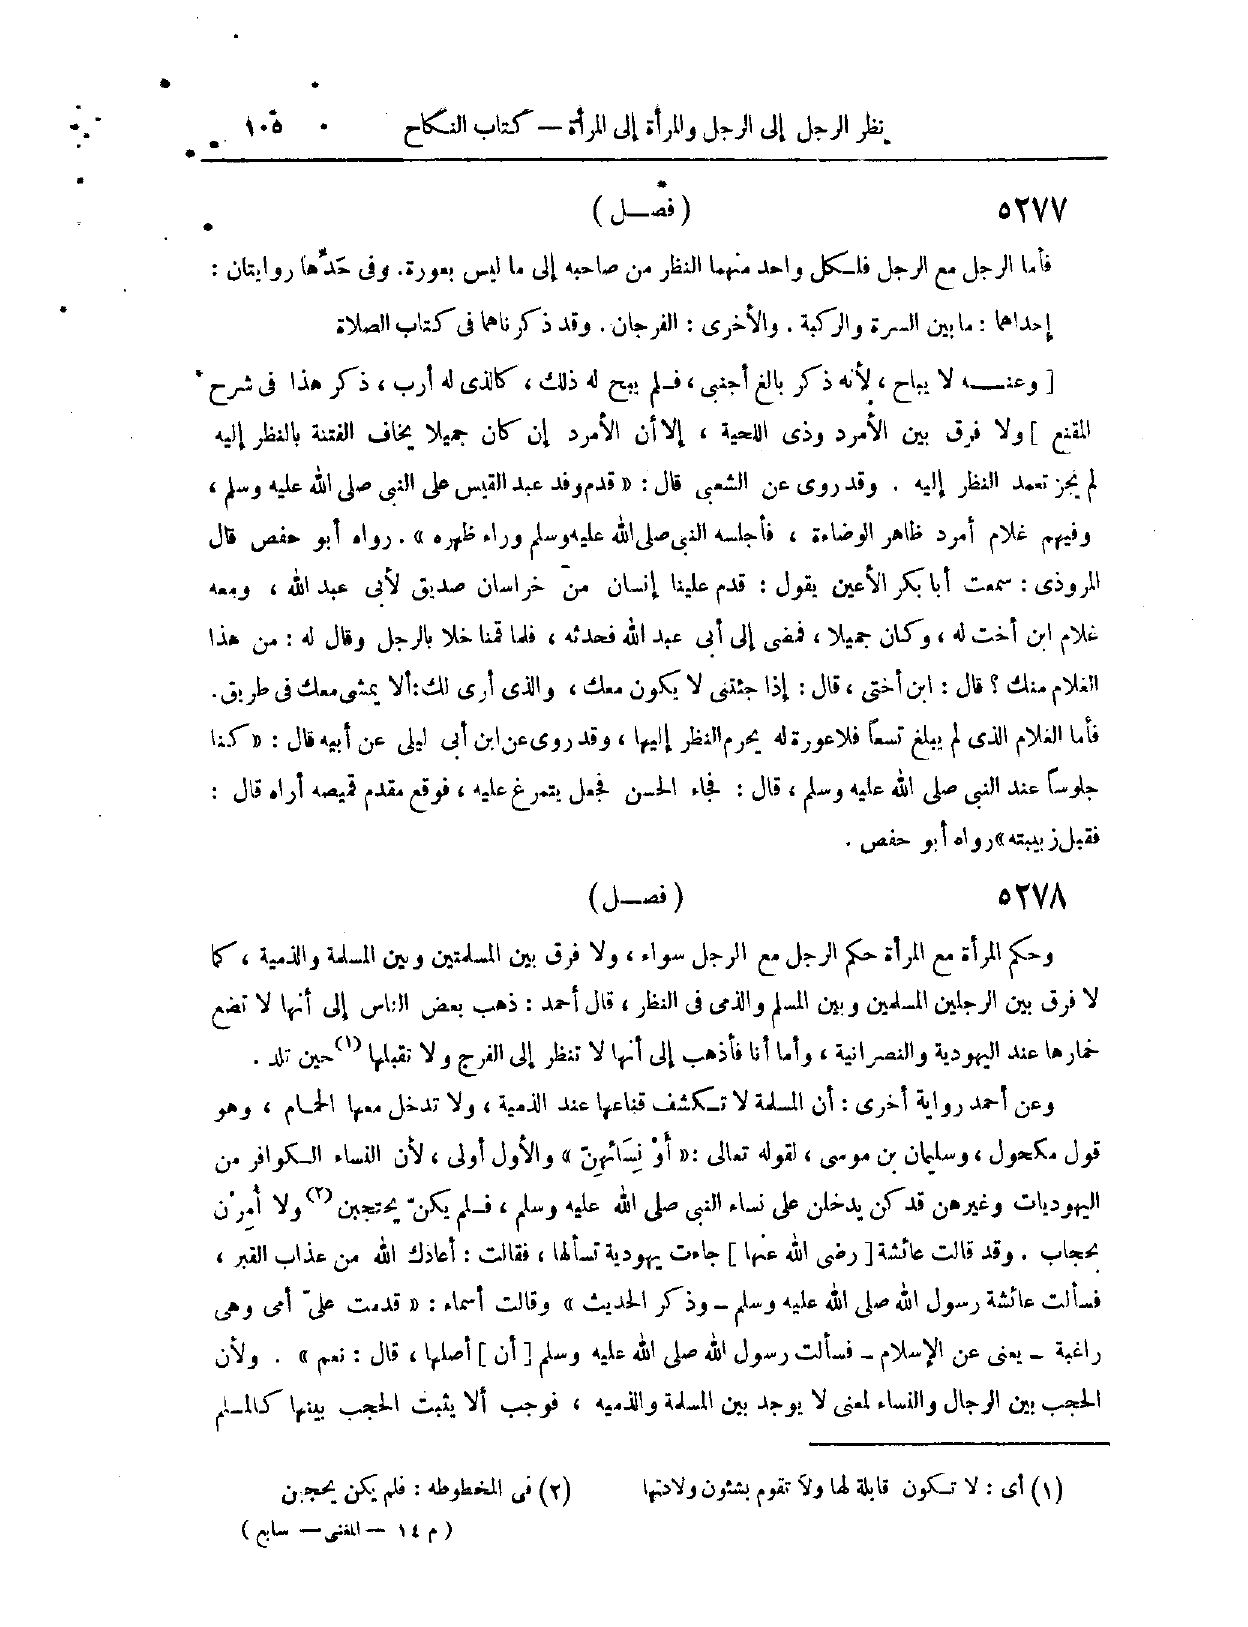 نظر الرجل إلى الرجل والمرأة إلى المرأة — كتاب النكاح ١٠٥
٥٢٧٧ ( فصـــل )
فأما الرجل مع الرجل فلـكل واحد منهما النظر من صاحبه إلى ما ليس بعورة. وفى حَدّها روايتان :
إحداها : ما بين السرة والركبة . والأخرى : الفرجان . وقد ذكرناها فى كتاب الصلاة
[ وعنـــه لا يباح ، لأنه ذكر بالغ أجنبى ، فـلم يبح له ذلك ، كالذى له أرب ، ذكر هذا فى شرح
المقنع ] ولا فرق بين الأمرد وذى اللحية ، إلا أن الأمرد إن كان جميلا يخاف الفتنة بالنظر إليه
لم يجز تعمد النظر إليه . وقد روى عن الشعبى قال : « قدم وفد عبد القيس على النبى صلى الله عليه وسلم ،
وفيهم غلام أمرد ظاهر الوضاءة ، فأجلسه النبى صلى الله عليه وسلم وراء ظهره » . رواه أبو حفص قال
المروذى : سمعت أبا بكر الأعين يقول : قدم علينا إنسان من خراسان صديق لأبى عبد الله ، ومعه
غلام ابن أخت له ، وكان جميلا ، فمضى إلى أبى عبد الله فحدثه ، فلما قمنا خلا بالرجل وقال له : من هذا
الغلام منك ؟ قال : ابن أختى ، قال : إذا جئتنى لا يكون معك ، والذى أرى لك : ألا يمشى معك فى طريق .
فأما الغلام الذى لم يبلغ تسعاً فلا عورة له يحرم النظر إليها ، وقد روى عن ابن أبى ليلى عن أبيه قال : « كنا
جلوساً عند النبى صلى الله عليه وسلم ، قال : فجاء الحسن فجعل يتمرغ عليه ، فوقع مقدم قميصه أراه قال :
فقبل زبيبته » رواه أبو حفص .
٥٢٧٨ ( فصـــل )
وحكم المرأة مع المرأة حكم الرجل مع الرجل سواء ، ولا فرق بين المسلمتين وبين المسلمة والذمية ، كما
لا فرق بين الرجلين المسلمين وبين المسلم والذمى فى النظر ، قال أحمد : ذهب بعض الناس إلى أنها لا تضع
خمارها عند اليهودية والنصرانية ، وأما أنا فأذهب إلى أنها لا تنظر إلى الفرج ولا تقبلها (١) حين تلد .
وعن أحمد رواية أخرى : أن المسلمة لا تـكشف قناعها عند الذمية ، ولا تدخل معها الحمام ، وهو
قول مكحول ، وسليمان بن موسى ، لقوله تعالى : « أَوْ نِسَائِهِنَّ » والأول أولى ، لأن النساء الـكوافر من
اليهوديات وغيرهن قد كن يدخلن على نساء النبى صلى الله عليه وسلم ، فـلم يكنّ يحتجبن (٢) ولا أُمِرْن
بحجاب . وقد قالت عائشة [ رضى الله عنها ] جاءت يهودية تسألها ، فقالت : أعاذك الله من عذاب القبر ،
فسألت عائشة رسول الله صلى الله عليه وسلم – وذكر الحديث » وقالت أسماء : « قدمت علىّ أمى وهى
راغبة – يعنى عن الإسلام – فسألت رسول الله صلى الله عليه وسلم [ أن ] أصلها ، قال : نعم » . ولأن
الحجب بين الرجال والنساء لمعنى لا يوجد بين المسلمة والذميه ، فوجب ألا يثبت الحجب بينها كالمسلم
(١) أى : لا تـكون قابلة لها ولا تقوم بشئون ولادتها (٢) فى المخطوطه : فلم يكن يحجبن
( م ١٤ — المغنى — سابع )